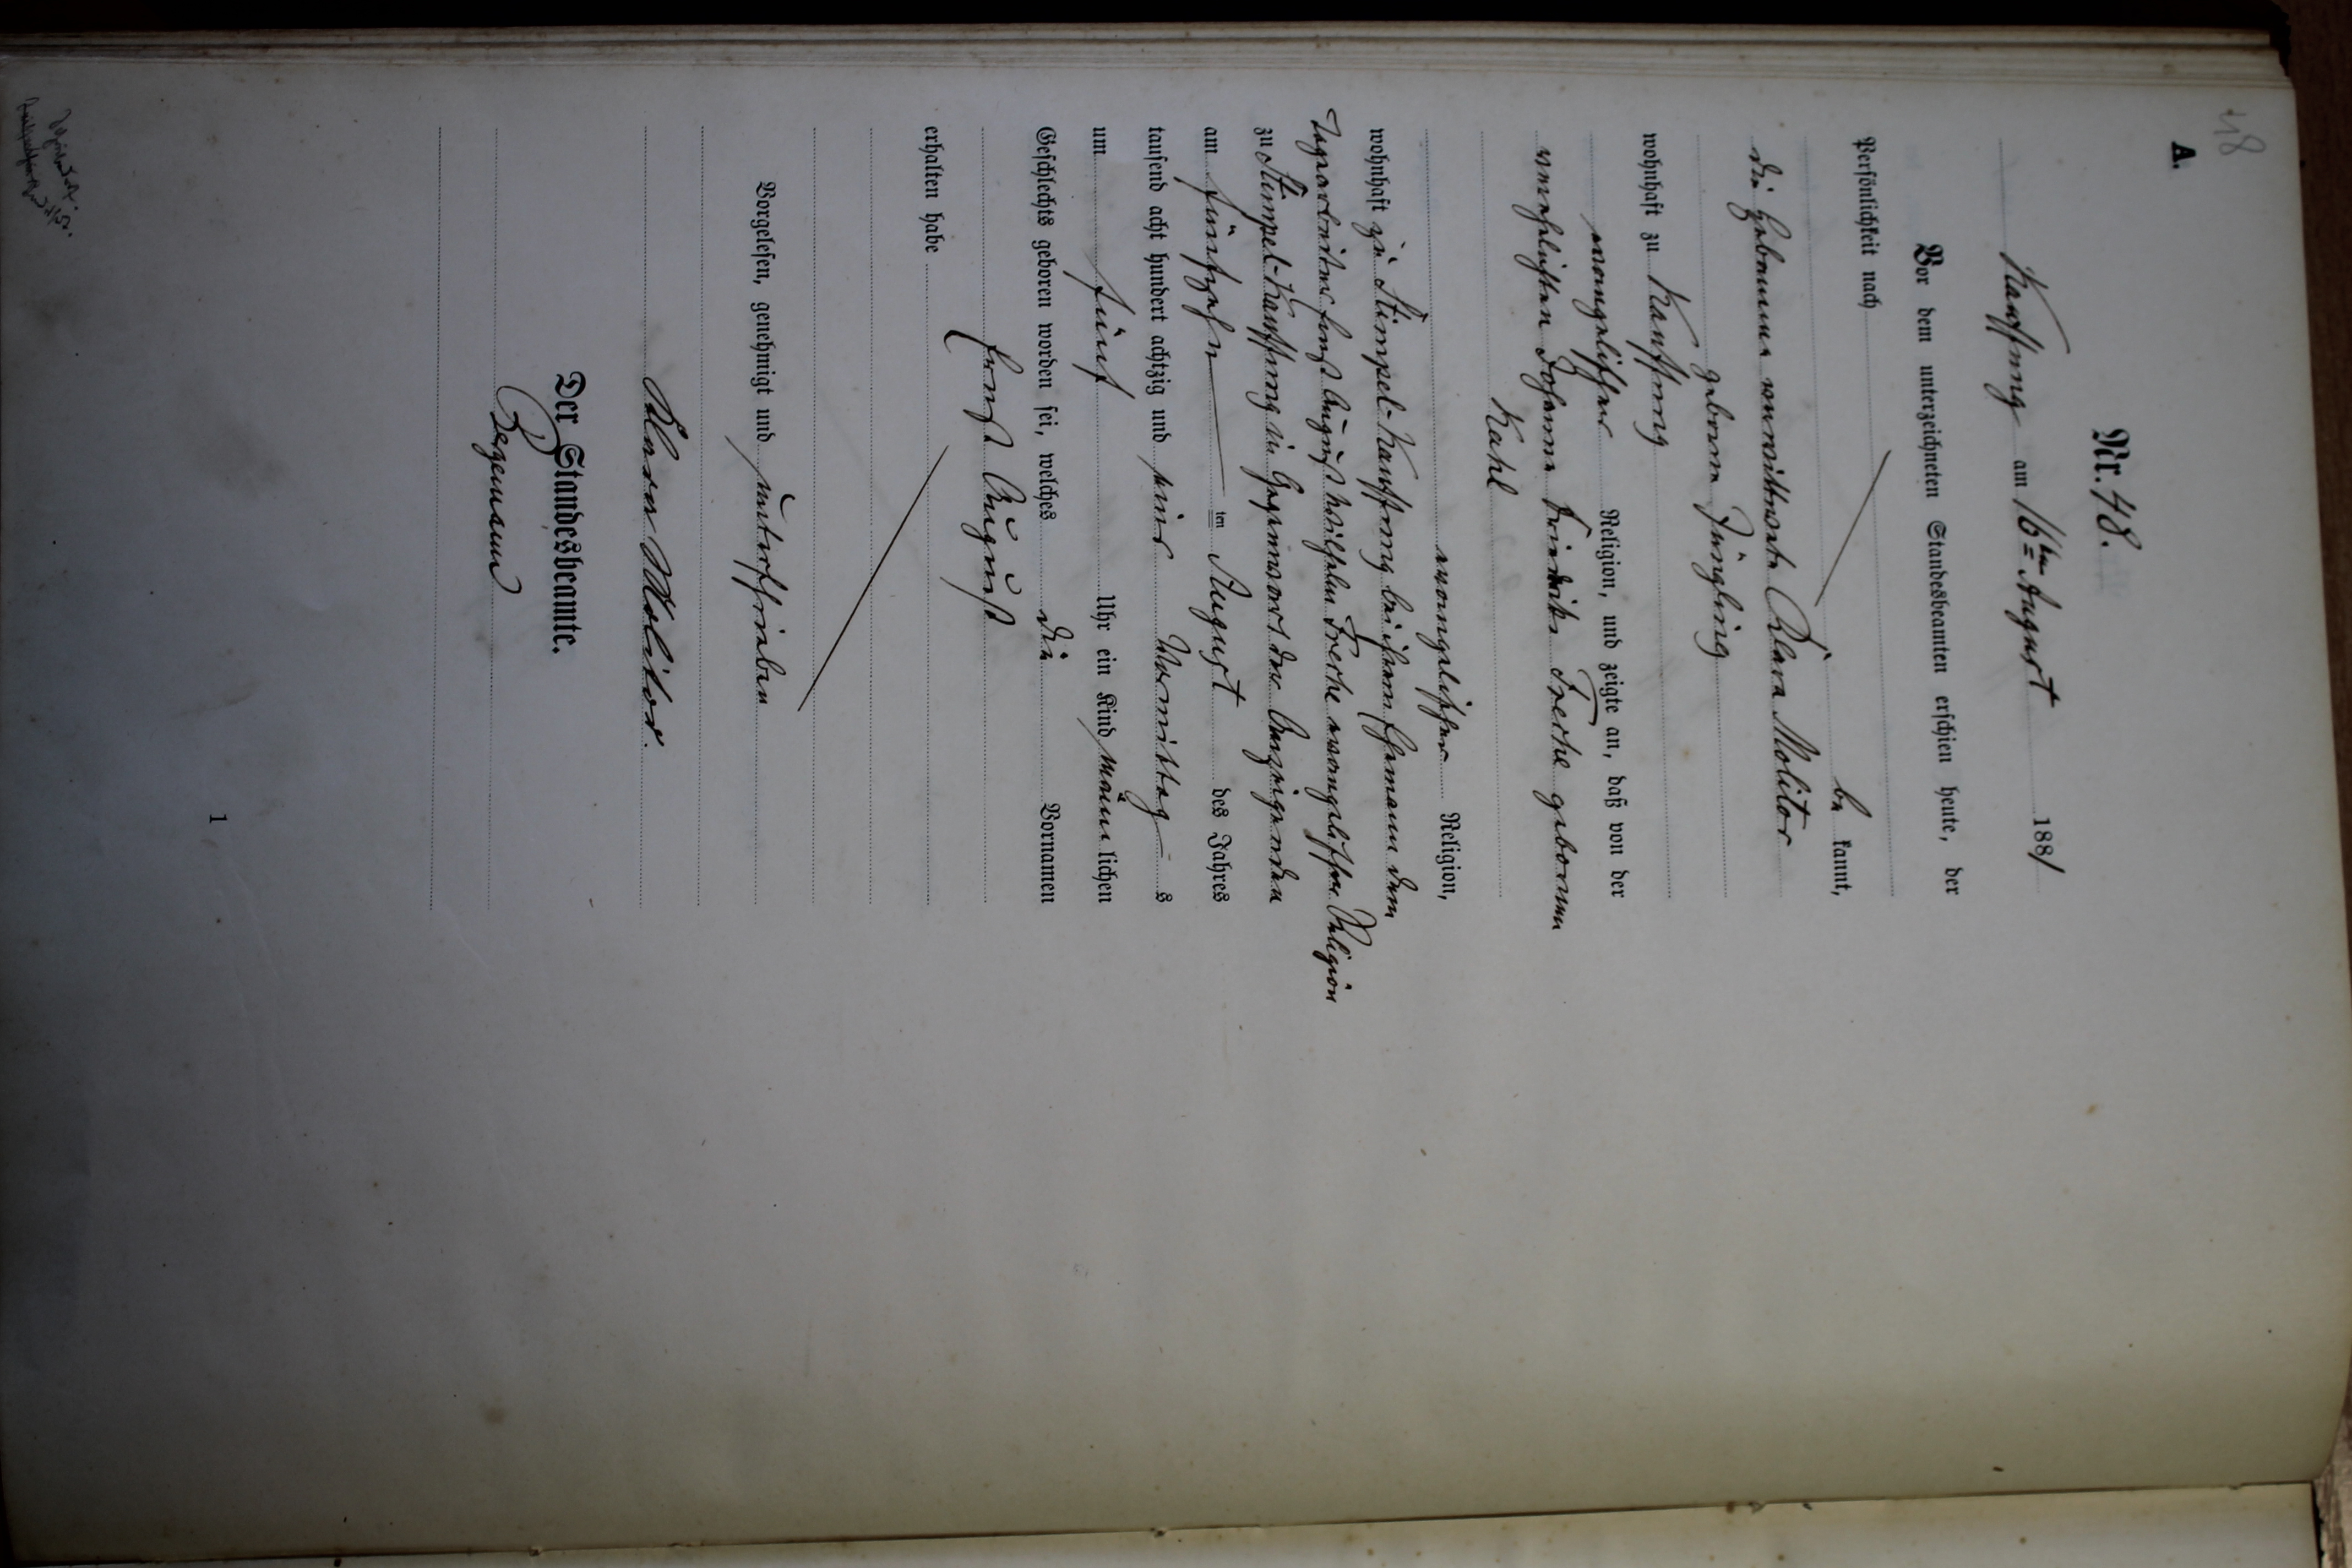 48
A.
Nr. 48.
Kauffung am 16ten August 1881
Vor dem unterzeichneten Standesbeamten erschien heute, der
Persönlichkeit nach
be kannt,
die Hebamme verwittwete Clara Molitor
geborne Jüngling
wohnhaft zu Kauffung
evangelischer Religion, und zeigte an, daß von der
verehelichten Johanne Friederike Freche geborenen
Kahl
evangelischer Religion,
wohnhaft zu Stimpel-Kauffung bei ihrem Ehemann dem
Tagearbeiter Ernst August Wilhelm Freche evangelischer Religion
zu Stimpel-Kauffung in Gegenwart der Anzeigenden
am fünfzehn ten August des Jahres
tausend acht hundert achtzig und eins Vormittag s
um fünf Uhr ein Kind männ lichen
Geschlechts geboren worden sei, welches die Vornamen
Ernst August
erhalten habe
Vorgelesen, genehmigt und unterschrieben
Clara Molitor.
Der Standesbeamte.
Bergemann
1